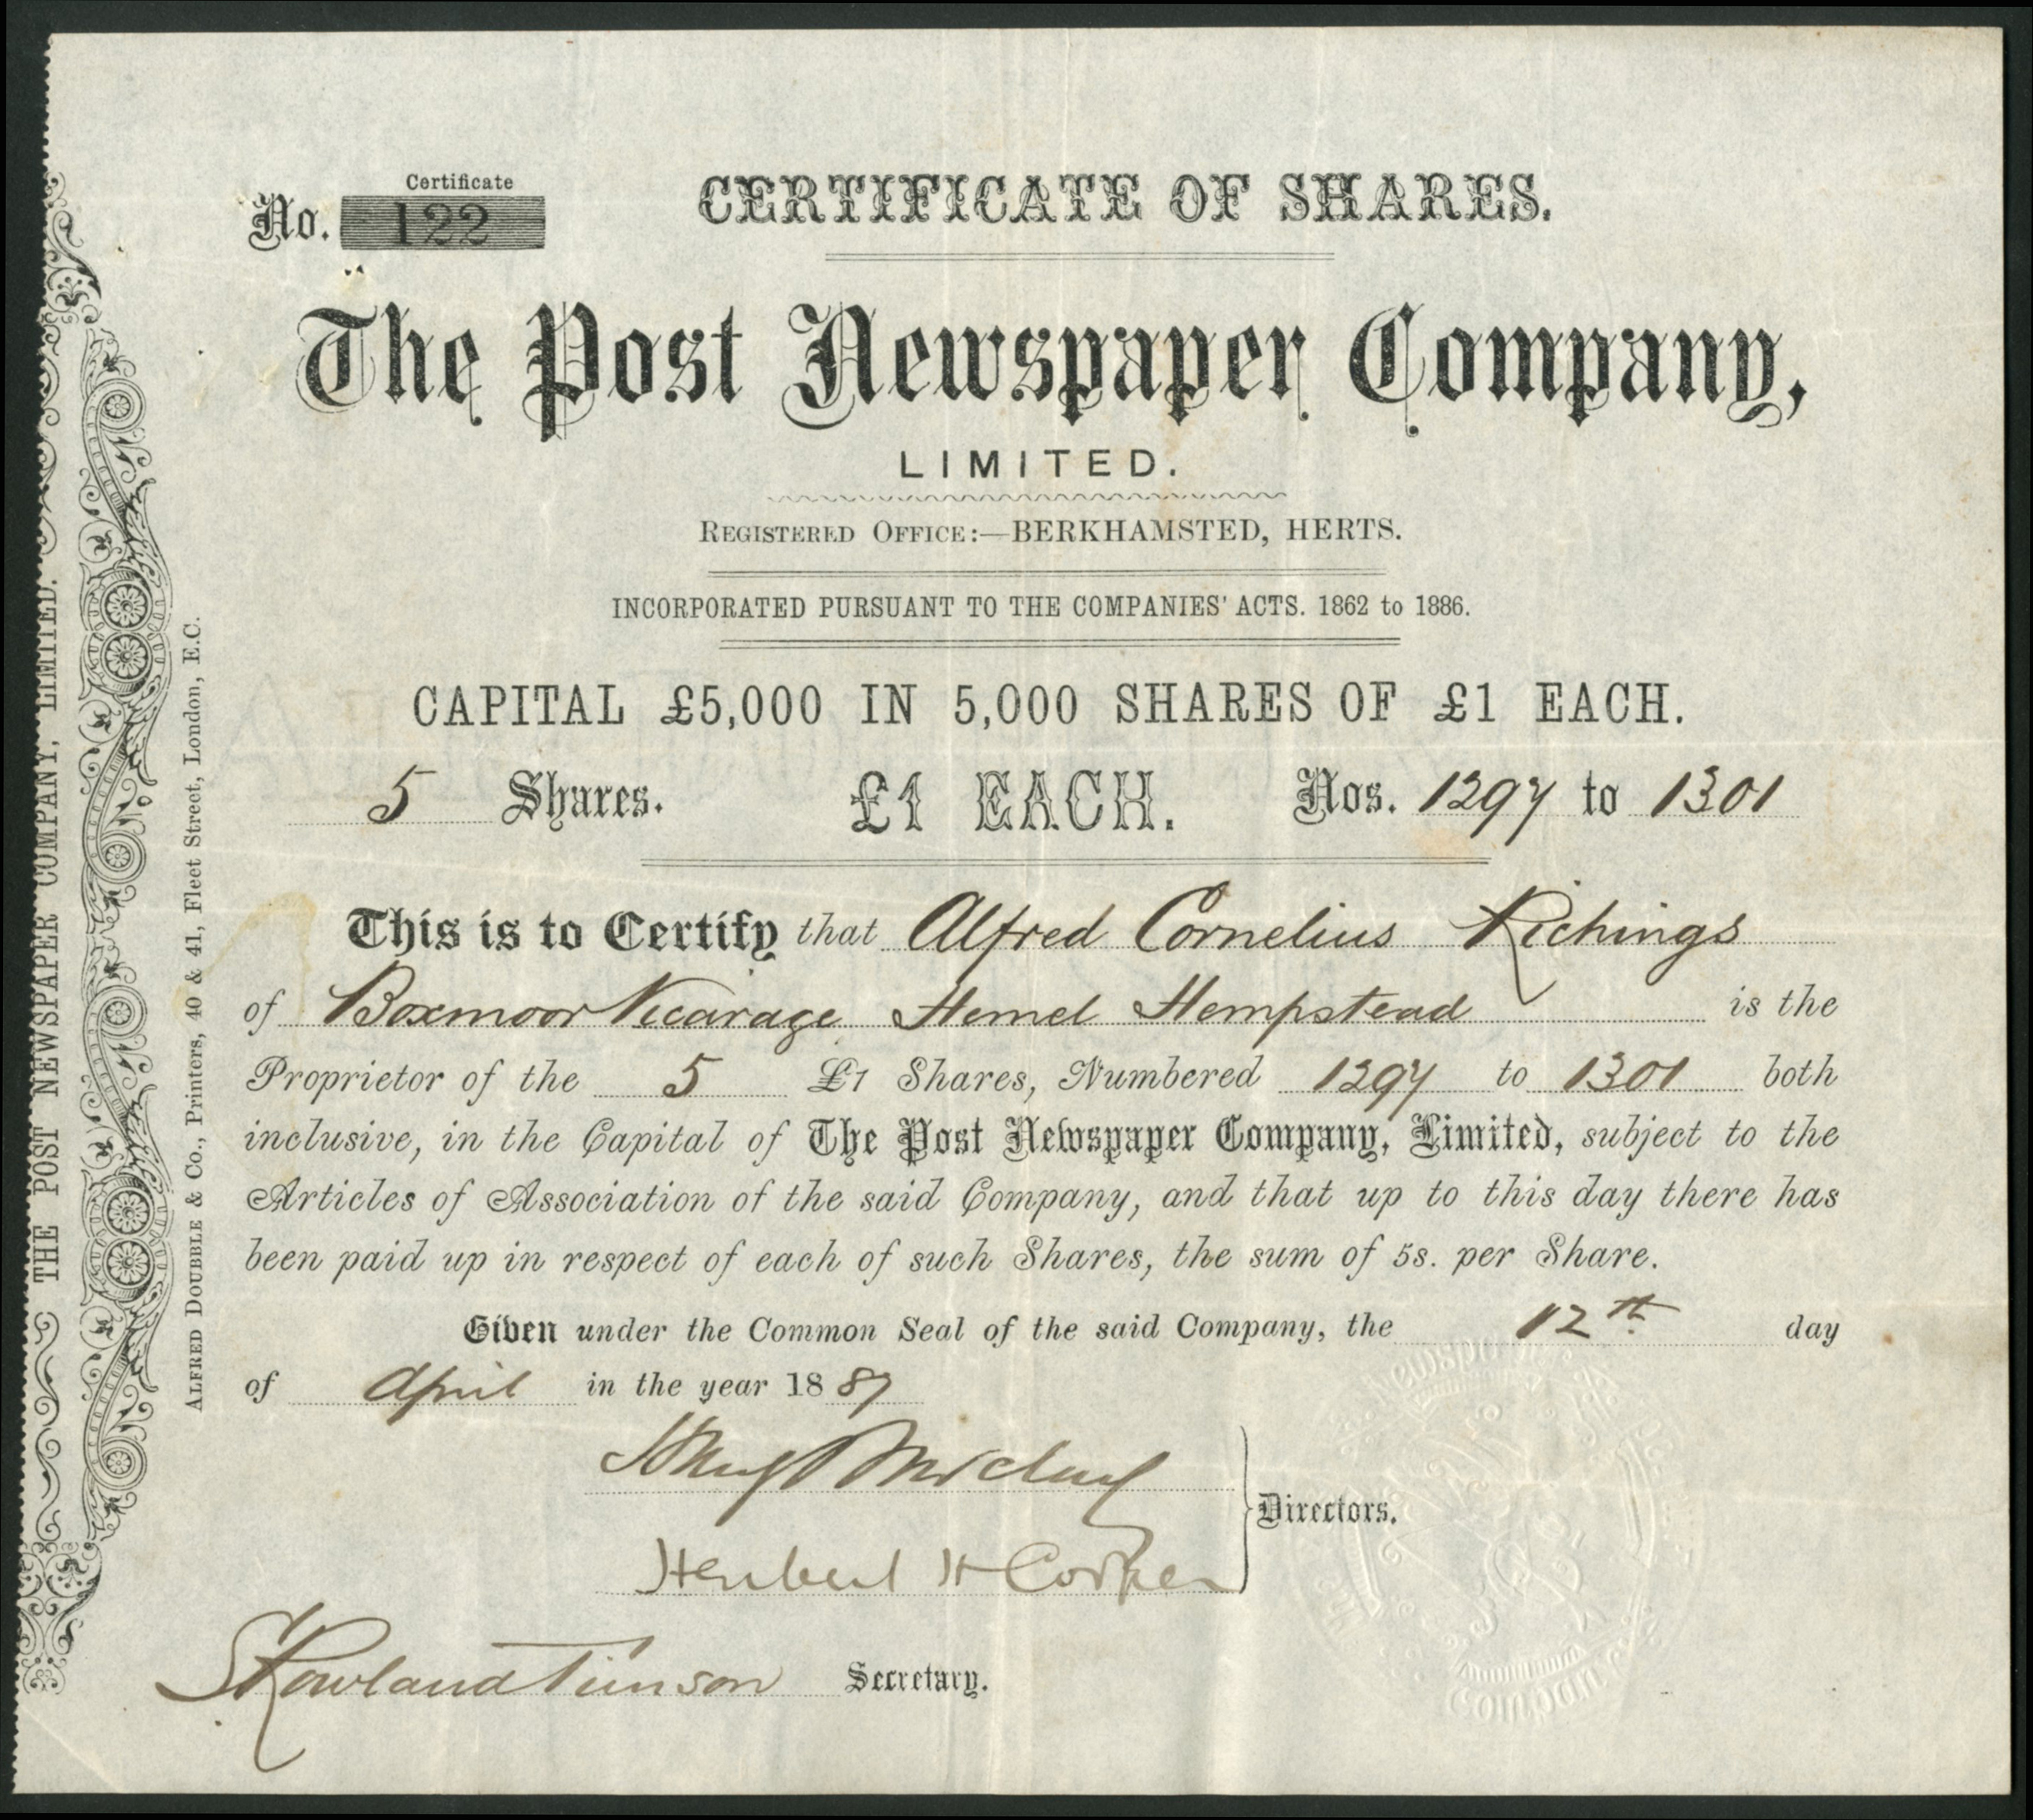 Certificate
No. 122
CERTIFICATE OF SHARES.
The Post Newspaper Company,
LIMITED.
REGISTERED OFFICE:—BERKHAMSTED, HERTS.
INCORPORATED PURSUANT TO THE COMPANIES' ACTS. 1862 to 1886.
CAPITAL £5,000 IN 5,000 SHARES OF £1 EACH.
5 Shares. £1 EACH. Nos. 1297 to 1301
This is to Certify that Alfred Cornelius Richings
of Boxmoor Vicarage Hemel Hempstead is the
Proprietor of the 5 £1 Shares, Numbered 1297 to 1301 both
inclusive, in the Capital of The Post Newspaper Company, Limited, subject to the
Articles of Association of the said Company, and that up to this day there has
been paid up in respect of each of such Shares, the sum of 5s. per Share.
Given under the Common Seal of the said Company, the 12th day
of April in the year 1887
Directors.
Herbert H Cooper
Rowland Timson Secretary.
THE POST NEWSPAPER COMPANY, LIMITED.
ALFRED DOUBBLE & Co., Printers, 40 & 41, Fleet Street, London, E.C.
Newspaper
Company